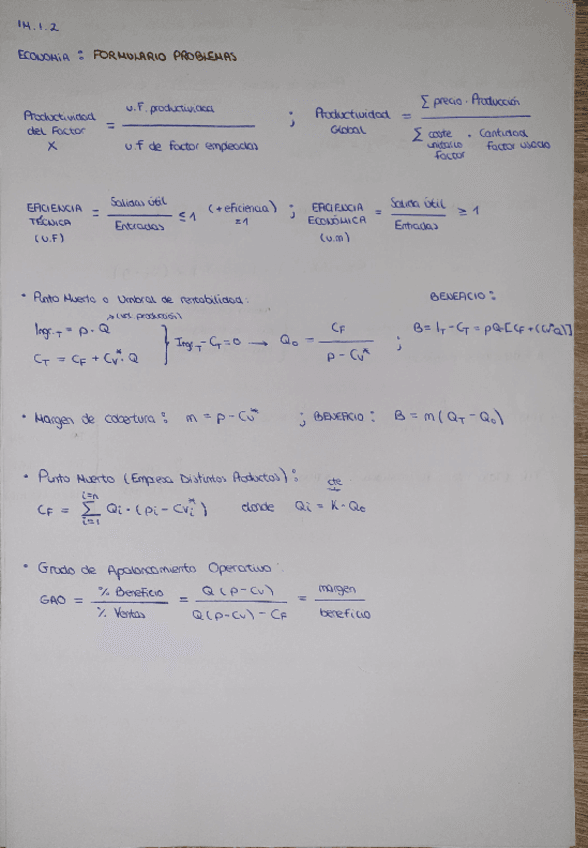 IM.1.2
ECONOMIA : FORMULARIO PROBLEMAS
Productividad del Factor X = u.F. productividad / u.f de factor empleadas ; Productividad Global = Σ precio · Producción / Σ coste unitario factor · Cantidad factor usado
EFICIENCIA TÉCNICA (u.F) = Salidas útil / Entradas ≤ 1 (+ eficiencia) =1 ; EFICIENCIA ECONÓMICA (u.m) = Salida útil / Entradas ≥ 1
• Punto Muerto o Umbral de rentabilidad: BENEFICIO :
→ (vol. producción)
Ingr.T = p · Q } Ingr.T - CT = 0 → Q0 = CF / p - Cv* ; B = IT - CT = pQ - [CF + (Cv*Q)]
CT = CF + Cv* · Q
• Margen de cobertura : m = p - Cv* ; BENEFICIO : B = m (QT - Q0)
• Punto Muerto (Empresa Distintos Productos) :
CF = Σ i=1 i=n Qi · (pi - Cvi*) donde Qi = K · Q0 cte
• Grado de Apalancamiento Operativo :
GAO = % Beneficio / % Ventas = Q (p - Cv) / Q (p - Cv) - CF = margen / beneficio